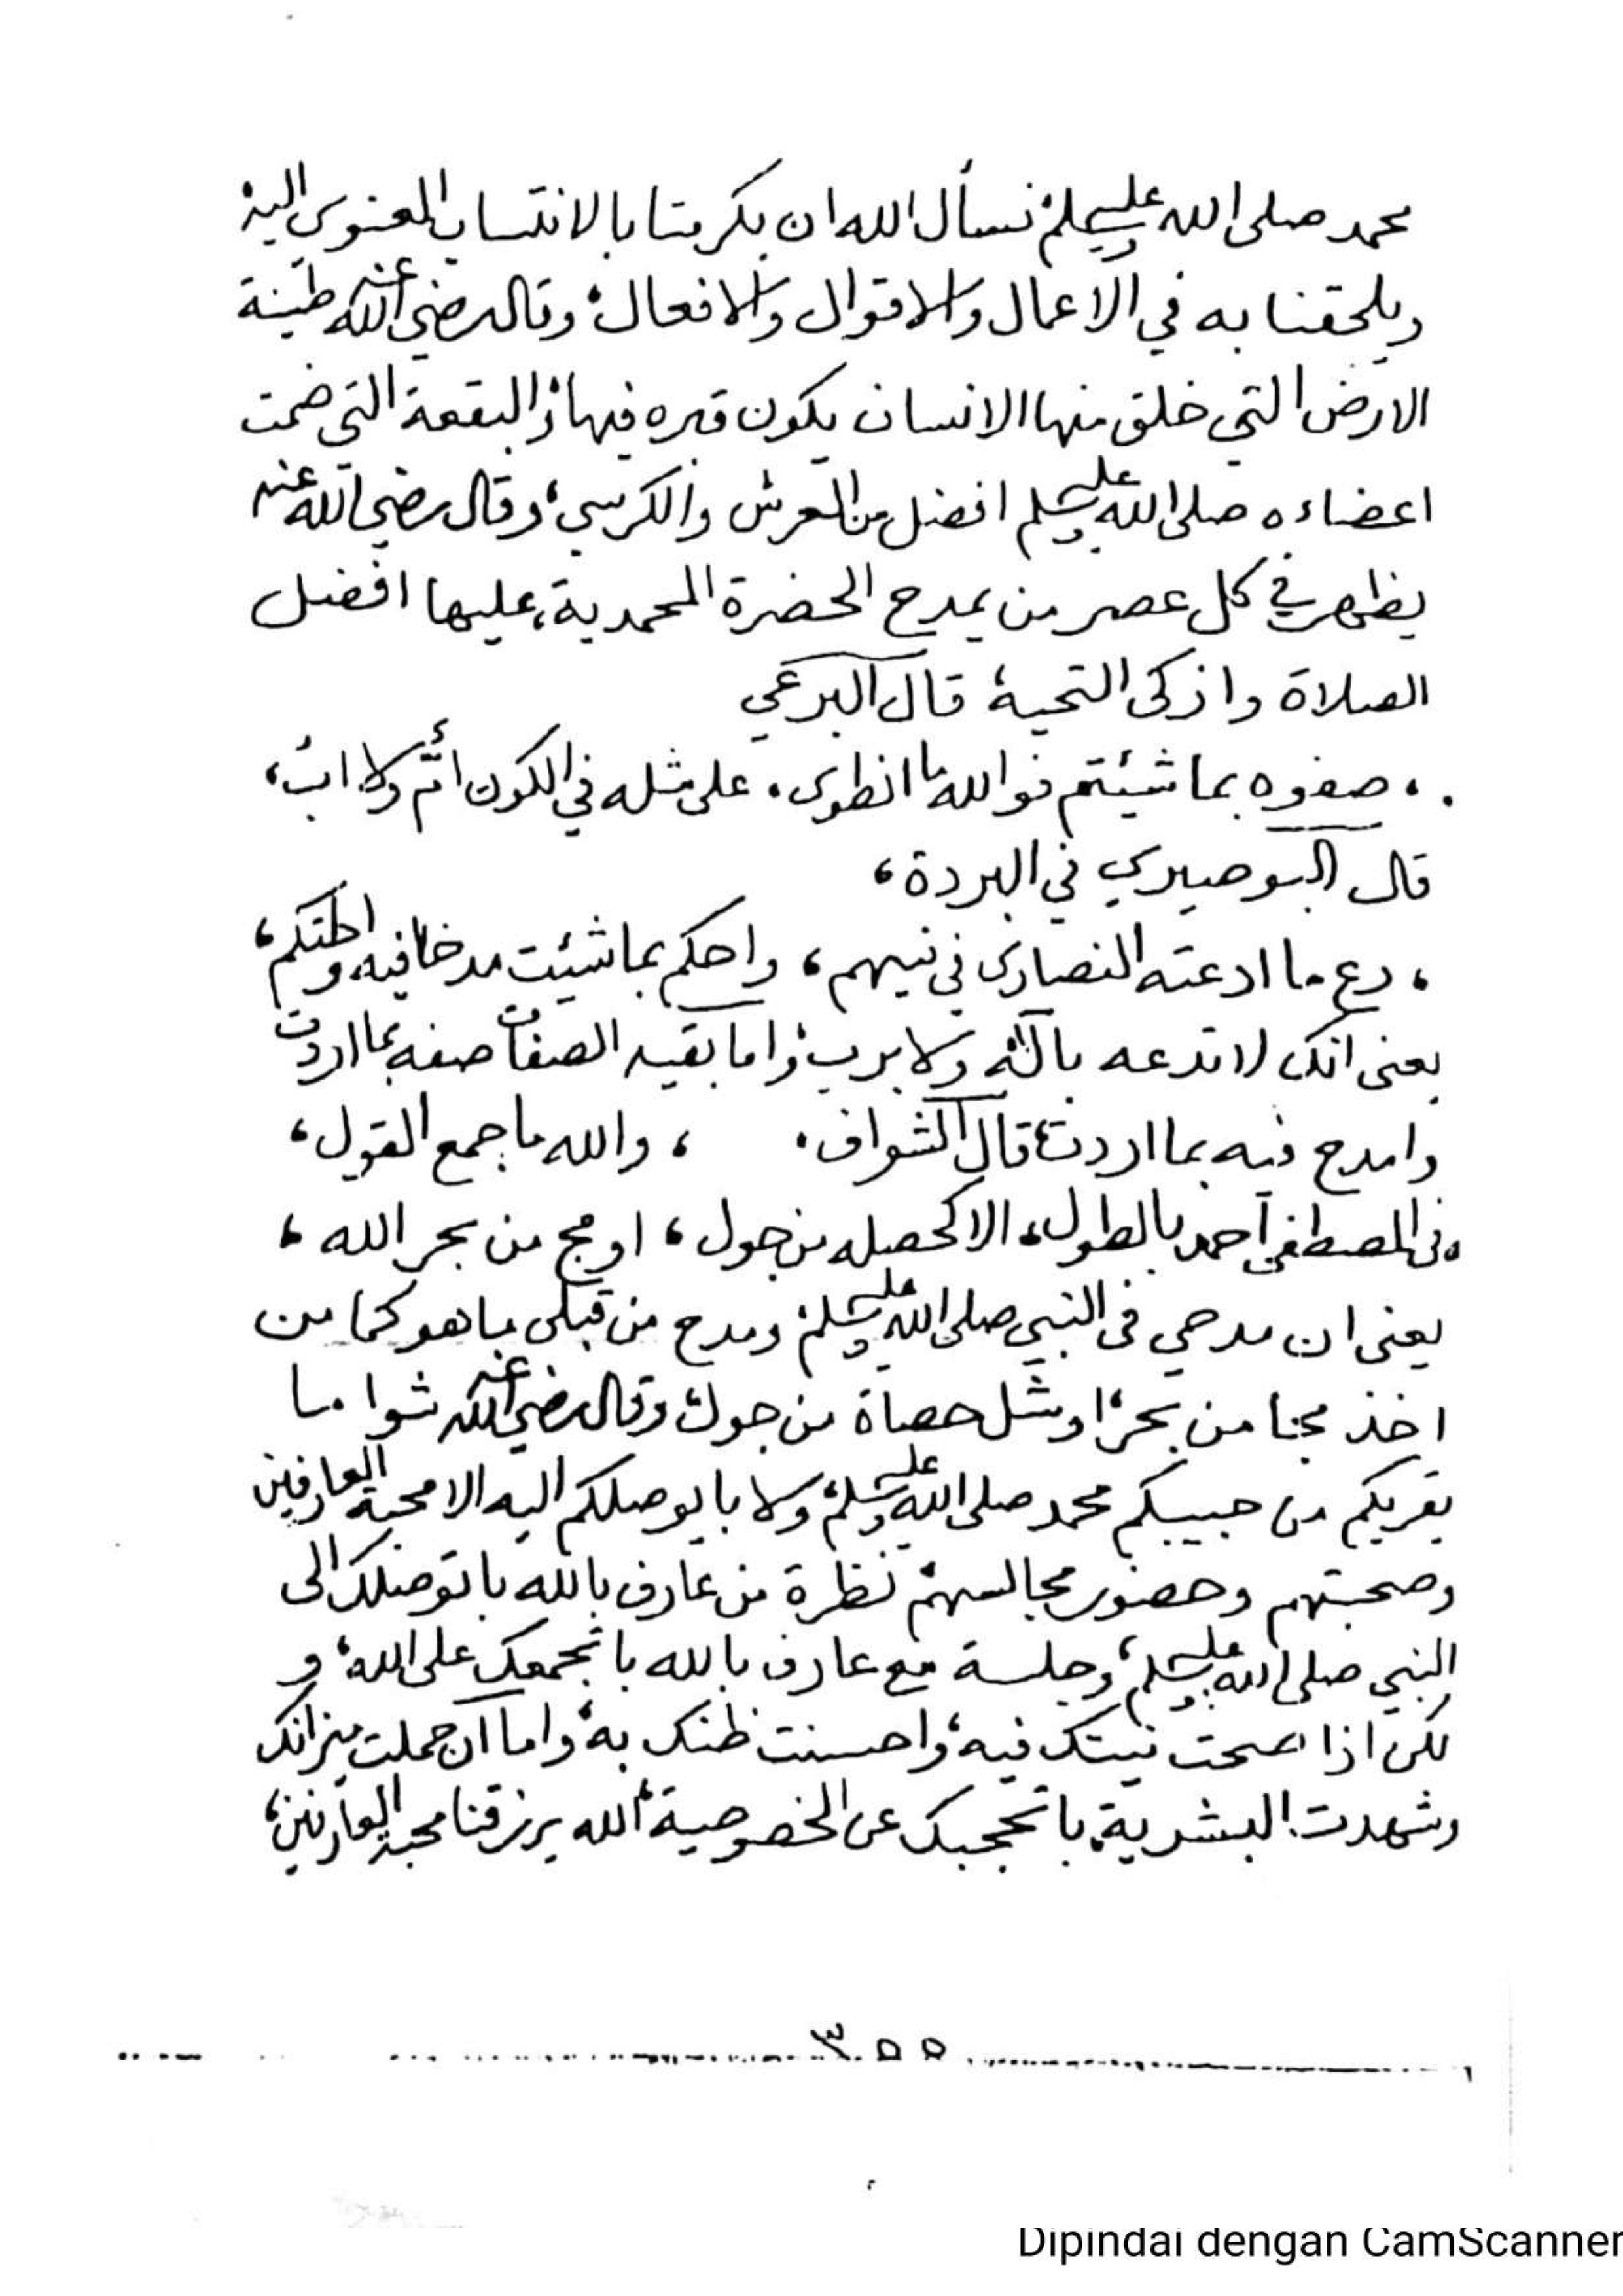 محمد صلى الله عليه وسلم، نسأل الله ان يكرمنا بالانتساب المعنوي اليه،
ويلحقنا به في الاعمال والاقوال والافعال، وقال رضي الله عنه طينة
الارض التي خلق منها الانسان يكون قبره فيها، والبقعة التي ضمت
اعضاءه صلى الله عليه وسلم افضل من العرش والكرسي، وقال رضي الله عنه
يظهر في كل عصر من يمدح الحضرة المحمدية، عليها افضل
الصلاة وازكى التحية، قال البرعي
، صفوه بما شيئتم فوالله ما انطوى، على مثله في الكون أمٌ ولا ابُ،
قال البوصيري في البردة،
، دع ما ادعته النصارى في نبيهم، واحكم بما شيئت مدحا فيه واحتكم،
يعنى انك لا تدعه بالله ولا برب، واما بقيه الصفات صفه بما اردت
وامدح فيه بما اردت، قال الشواف، ، والله ما جمع القول،
، فى المصطفى احمد بالطول، الا كحصله من جول، او مج من بحر الله،
يعنى ان مدحي فى النبي صلى الله عليه وسلم، ومدح من قبلى ما هو كما من
اخذ مجا من بحر، او مثل حصاة من جول، وقال رضي الله عنه شوا ما
يقربكم من حبيبكم محمد صلى الله عليه وسلم، ولا با يوصلكم اليه الا محبة العارفين
وصحبتهم وحضور مجالسهم، نظرة من عارف بالله با توصلك الى
النبي صلى الله عليه وسلم، وجلسة مع عارف بالله با تجمعك على الله، و
لكن اذا صحت نيتك فيه، واحسنت ظنك به، واما ان حملت ميزانك
وشهدت البشرية، با تحجبك عن الخصوصية، الله يرزقنا محبة العارفين،
٣٥٥
Dipindai dengan CamScanner